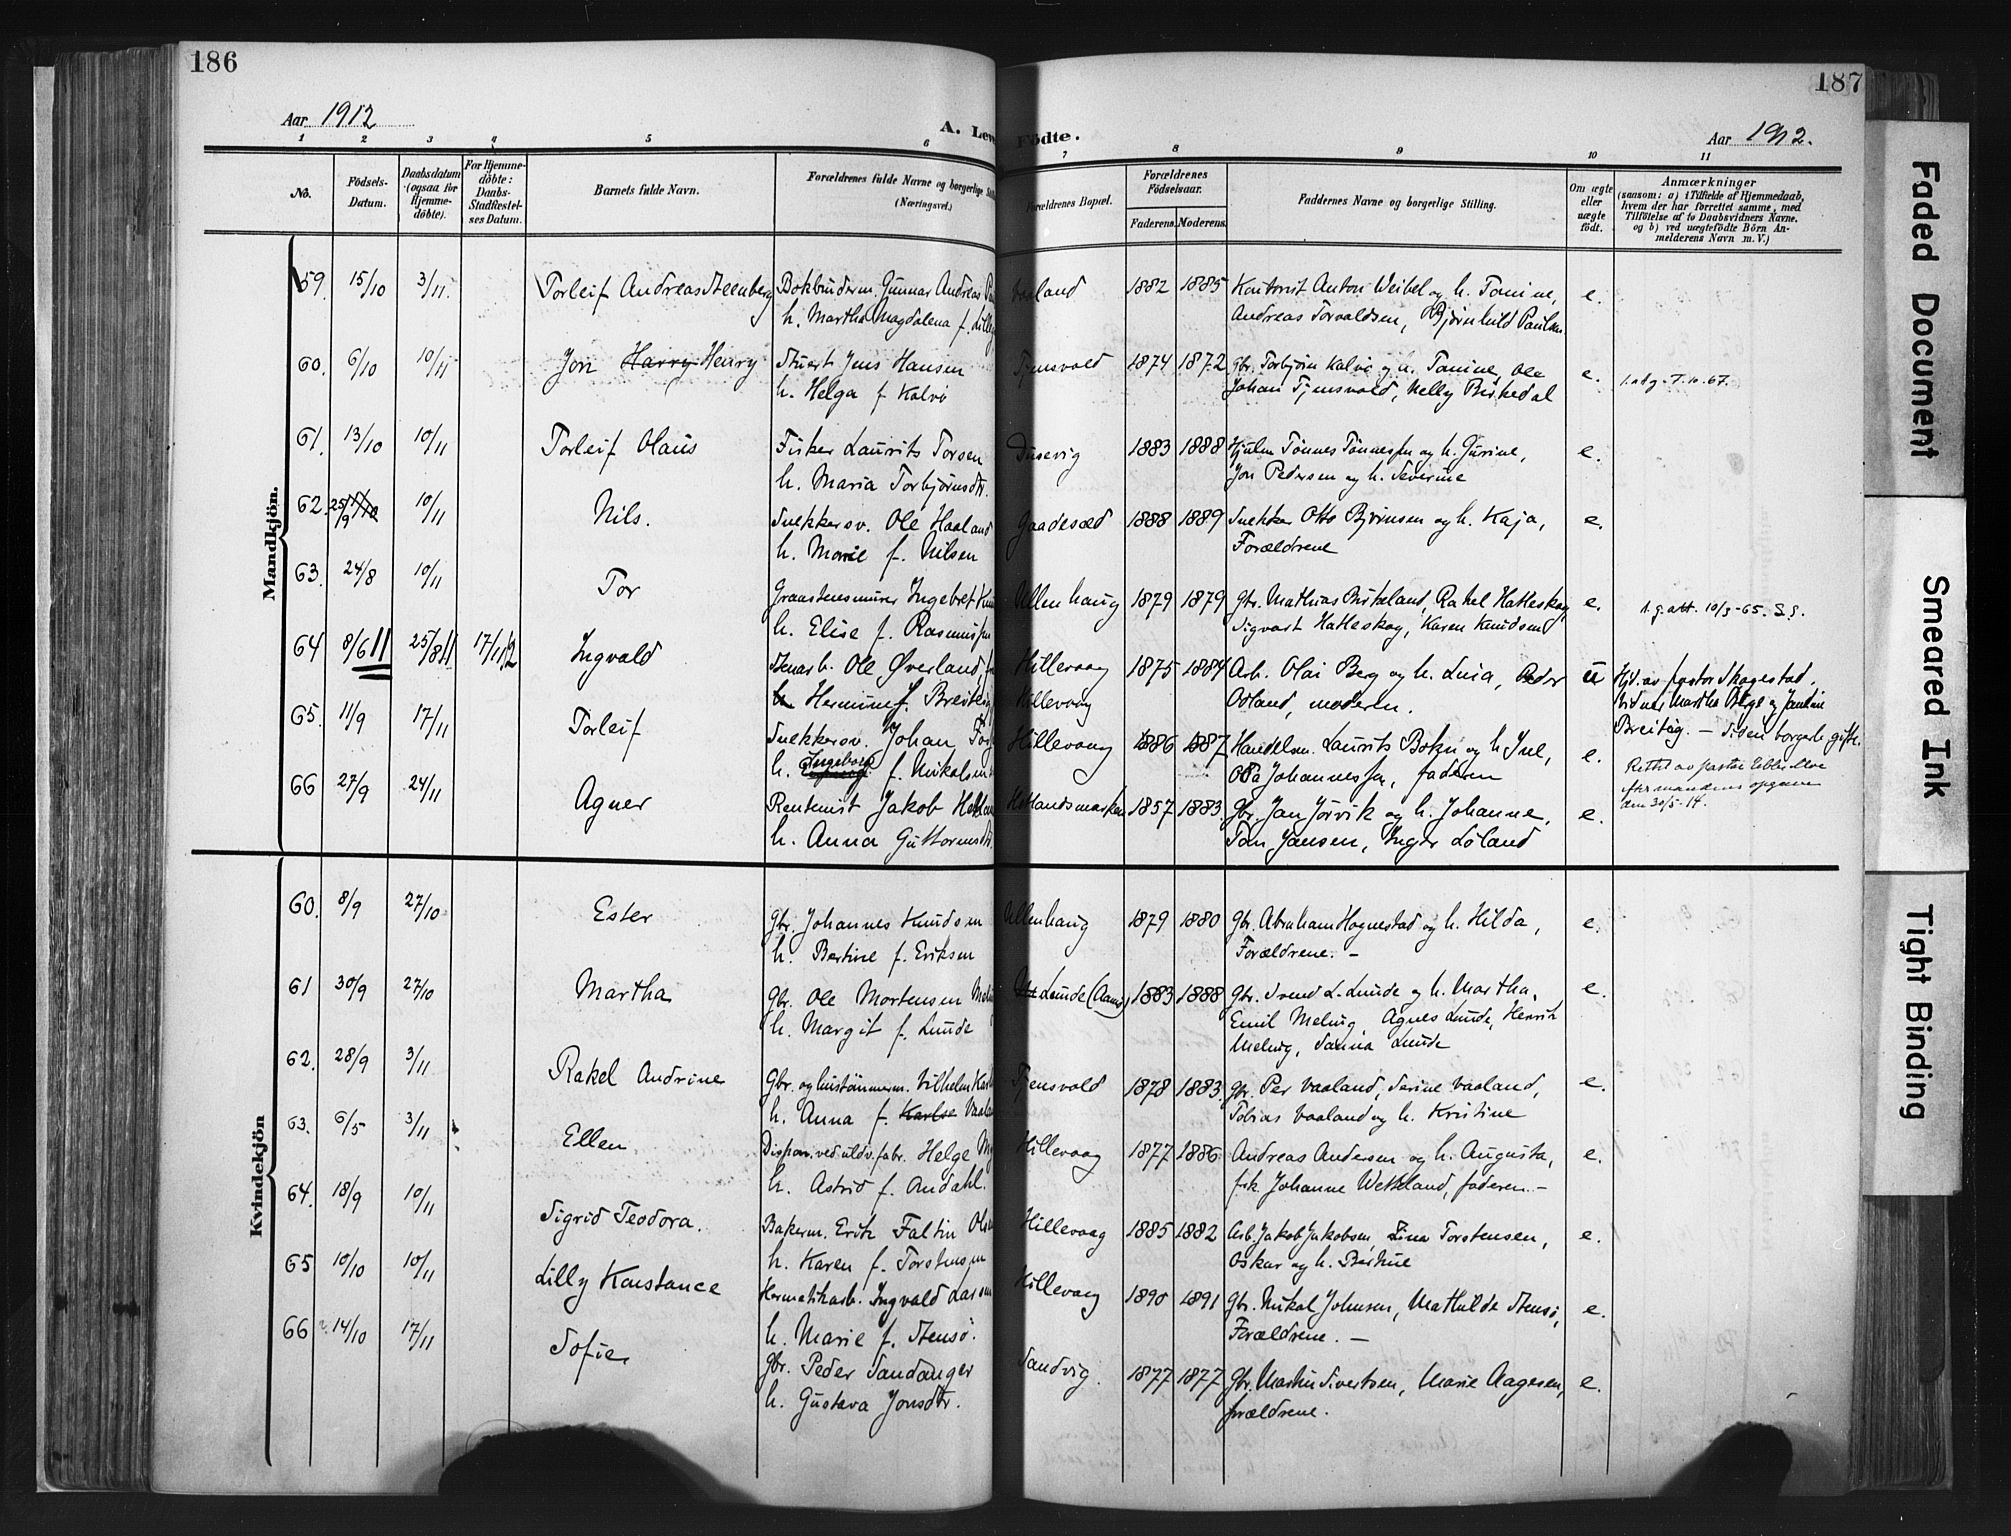 186
187
Aar 1912
A. Leve
Födte.
Aar 1912.
1 2 3 4 5 6 7 8 9 10 11
No.
Födsels-Datum.
Daabsdatum (ogsaa for Hjemmedöbte).
For Hjemmedöbte: Daabs-Stadfæstelses Datum.
Barnets fulde Navn.
Forældrenes fulde Navne og borgerlige Stil (Næringsvei.)
Forældrenes Bopæl.
Forældrenes Födselsaar.
Faderens. Moderens.
Faddernes Navne og borgerlige Stilling.
Om ægte eller uægte födt.
Anmærkninger
(saasom: a) i Tilfælde af Hjemmedaab,
hvem der har forrettet samme, med
Tilföielse af to Daabsvidners Navne.
og b) ved uægtefödte Börn An-
melderens Navn m. V.)
Mandkjön.
59. 15/10 3/11. Torleif Andreas Steenberg Bokbinderm. Gunnar Andreas Vaaland 1882 1885 Kontorist Anton Weibel og h. Tomine, e.
h. Martha Magdalena f. Andreas Torvaldsen, Bjørnhild Paulsen
60. 6/10 10/11 Jon Harry Henry Stuert Jens Hansen Tjensvold 1874 1872 gbr. Torbjørn Kalvø og h. Tomine, Ole e. 7.10.67.
h. Helga f Kalvø Johan Tjensvold, Nelly Birkedal
61. 13/10 10/11 Torleif Olaus Fisker Laurits Torsen Dusevig 1883 1888 Hjulm Tønnes Tønnessen og h. Gurine, e.
h. Maria Torbjørnsdtr. Jon Pedersen og h. Severine
62. 25/9 10/11 Nils. Snekkersv. Ole Haaland Gaadesæd 1888 1889 Snekker Otto Bjørnsen og h. Kaja, e.
h. Marie f. Nilsen Forældrene
63. 24/8 10/11 Tor Graastensmurer Ingebret Ullenhaug 1879 1879 gbr. Mathias Birkeland, Rakel Hatleskog, e. 10/3-65. S.S.
h. Elise f. Rasmussen Sigvart Hatleskog, Karen Knudsen
64 8/6 11 25/8 11 17/11 12 Ingvald Stenarb. Ole Øverland, Hillevaag 1875 1884 Arb. Olai Berg og h. Lina, Peder u Hjd. av pastor Skagestad.
h. Hermine f. Breiteig Hillevaag Odland, moderen. Vidner Martha Berge og Jantine
Breiteg. – Siden borgerl. gifte.
65. 11/9 17/11 Torleif Snekkersv. Johan Hillevaag 1886 1887 Handelsm. Laurits Bokn og h Ine, e.
h. Ingeborg f. Nikolsen Ola Johannessen, faderen
Rettet av pastor
efter mandens opgave
den 30/5-14.
66 27/9 24/11 Agner Rentenist Jakob Hetlandsmarken 1857 1883 Gbr. Jan Jörvik og h. Johanne, e.
h. Anna Guttormsdtr. Tom Jansen, Inger Löland
Kvindekjön
60. 8/9 27/10 Ester gbr. Johannes Knudsen Ullenhaug 1879 1880 gbr. Abraham Hognestad og h. Hilda, e.
h. Bertine f. Eriksen Forældrene. –
61 30/9 27/10 Martha gbr. Ole Mortensen Lunde (Aam) 1883 1888 gbr. Svend L. Lunde og h. Martha, e.
h. Margit f. Lunde Emil Meling, Agnes Lunde, Henrik
Meling, Sanna Lunde
62. 28/9 3/11 Rakel Andrine Gbr. og hustömmerm. Vilhelm Tjensvold 1878 1883. gbr. Per Vaaland, Serine Vaaland, e.
h. Anna f. Karlse Vaaland Tobias Vaaland og h. Kristine
63. 6/5 3/11 Ellen Dispon. ved uldv.fabr. Helge Hillevaag 1877 1886 Andreas Andersen og h. Augusta, e.
h. Astrid f. Andahl. frk. Johanne Wetteland, faderen. –
64. 18/9 10/11 Sigrid Teodora. Bakerm. Erik Faltin Hillevaag 1885 1882 Arb. Jakob Jakobsen, Lina Torstensen, e.
h. Karen f. Torstensen Oskar og h. Bertine
65 10/10 10/11 Lilly Konstance Hermetikarb. Ingvald Larsen Hillevaag 1890 1891 Gbr. Nikol Johnsen, Mathilde Stensö, e.
h. Marie f. Stensö. Forældrene. –
66 14/10 17/11 Sofie gbr. Peder Sandanger Sandvig. 1877 1877 Gbr. Martin Sivertsen, Marie Aagesen, e.
h. Gustava Jonsdtr. forældrene.
Faded Document
Smeared Ink
Tight Binding